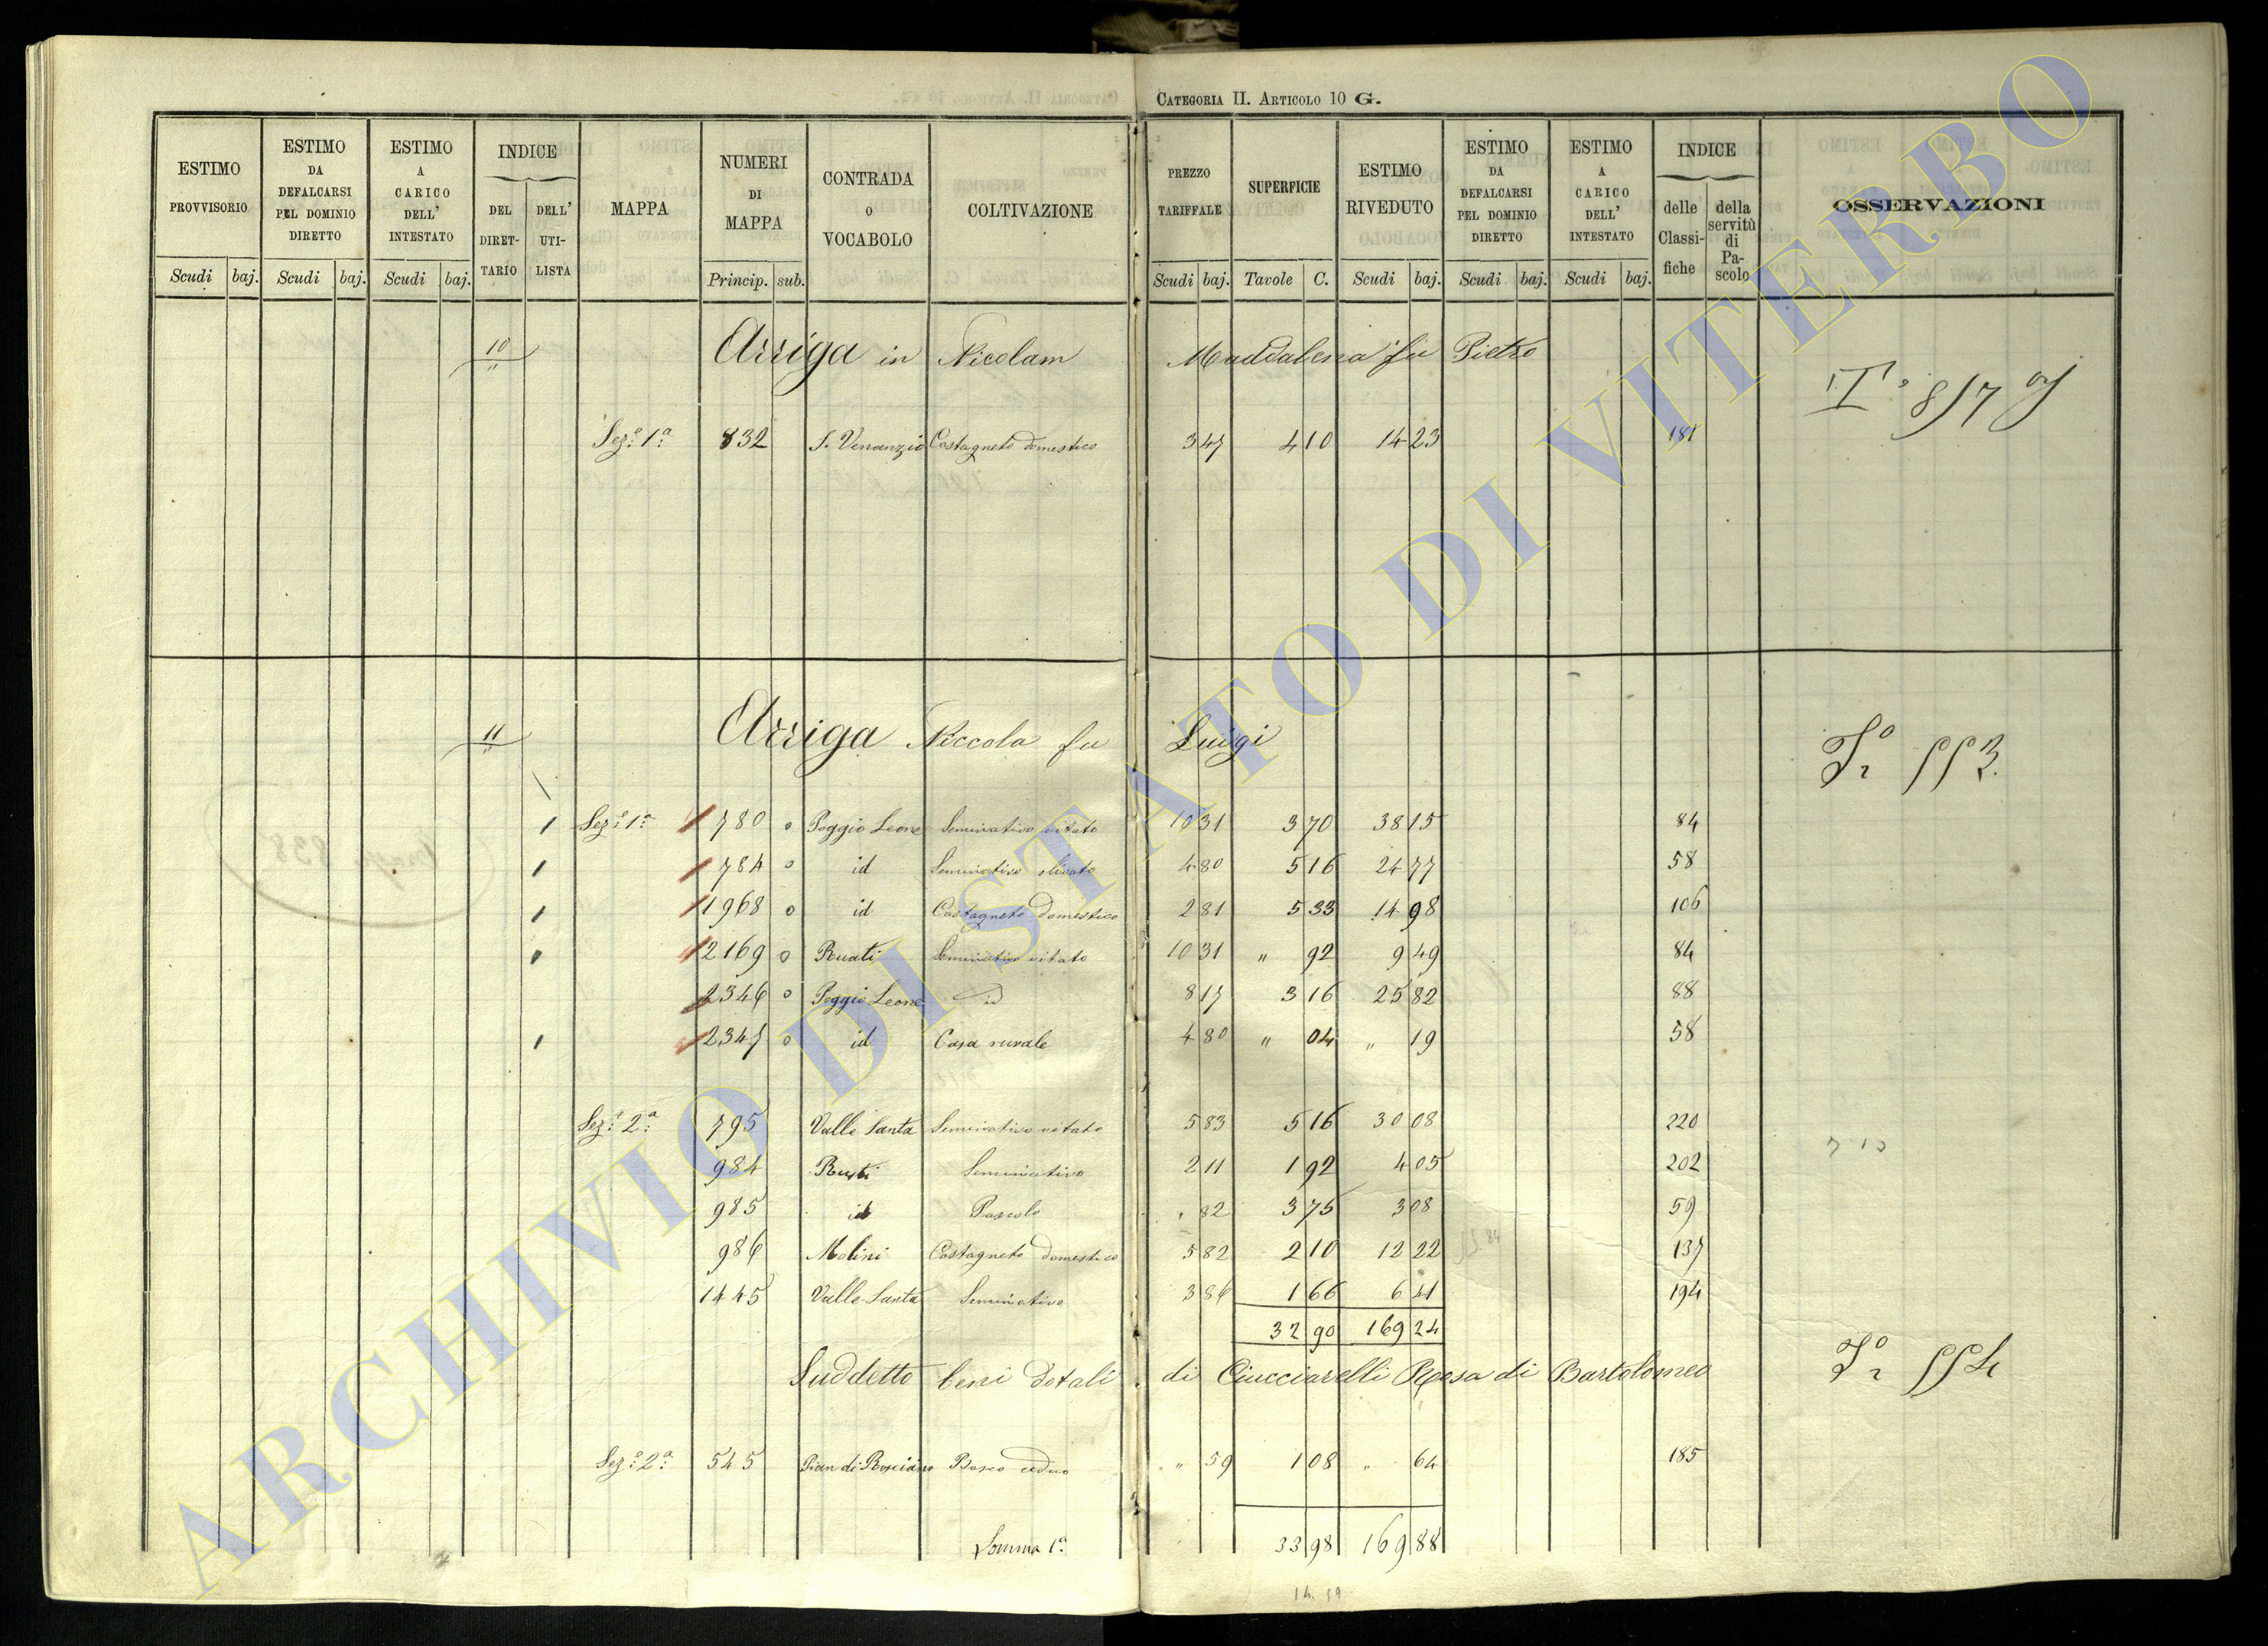 CATEGORIA II. ARTICOLO 10 G.
ESTIMO PROVVISORIO Scudi baj.
ESTIMO DA DEFALCARSI PEL DOMINIO DIRETTO Scudi baj.
ESTIMO A CARICO DELL' INTESTATO Scudi baj.
INDICE DEL DIRET-TARIO DELL' UTI-LISTA
MAPPA
NUMERI DI MAPPA Princip. sub.
CONTRADA O VOCABOLO
COLTIVAZIONE
PREZZO TARIFFALE Scudi baj.
SUPERFICIE Tavole C.
ESTIMO RIVEDUTO Scudi baj.
ESTIMO DA DEFALCARSI PEL DOMINIO DIRETTO Scudi baj.
ESTIMO A CARICO DELL' INTESTATO Scudi baj.
INDICE delle Classi-fiche della servitù di Pa-scolo
OSSERVAZIONI
10 Arriga in Nicolam Maddalena fu Pietro
Sez.e 1a 832 S. Venanzio Castagneto domestico 3 47 4 10 14 23 181
11 Arriga Niccola fu Luigi
Sez.e 1a 780 0 Poggio Leone Seminativo vitato 10 31 3 70 38 15 84
784 0 id Seminativo olivato 4 80 5 16 24 77 58
1968 0 id Castagneto domestico 2 81 5 33 14 98 106
2169 0 Ruati Seminativo vitato 10 31 " 92 9 49 84
2346 0 Poggio Leone id 8 17 3 16 25 82 88
2347 0 id Casa rurale 4 80 " 04 " 19 58
Sez.e 2a 795 Valle Santa Seminativo vitato 5 83 5 16 30 08 220
984 Seminativo 2 11 1 92 4 05 202
985 id Pascolo " 82 3 75 3 08 59
986 Molini Castagneto domestico 5 82 2 10 12 22 137
1445 Valle Santa Seminativo 3 86 1 66 6 41 194
32 90 169 24
Suddetto beni dotali di Ciucciarelli Rosa di Bartolomeo
Sez.e 2a 545 Pian di Rosciano Bosco ceduo " 59 1 08 " 64 185
Somma 1a 33 98 169 88
ARCHIVIO DI STATO DI VITERBO